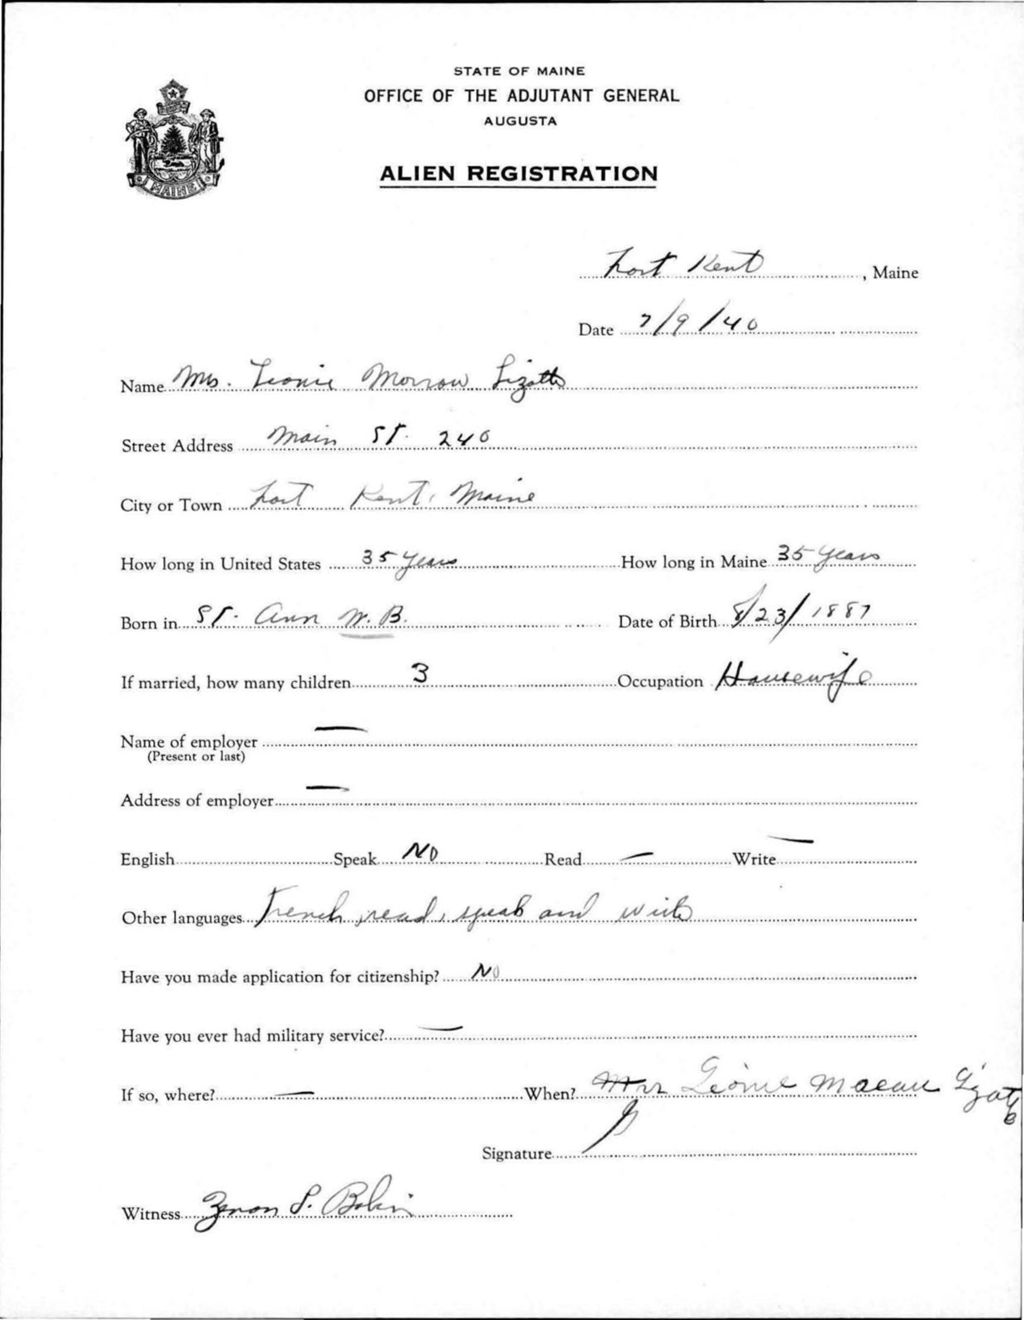 STATE OF MAINE
OFFICE OF THE ADJUTANT GENERAL
AUGUSTA
ALIEN REGISTRATION
MAINE
Fort Kent, Maine
Date 7/9/40
Name Mrs. Leonie Morrow Lizotte
Street Address Main St. 240
City or Town Fort Kent, Maine
How long in United States 35 years How long in Maine 35 years
Born in St. Ann N.B. Date of Birth 8/23/1887
If married, how many children 3 Occupation Housewife
Name of employer —
(Present or last)
Address of employer —
English Speak No Read — Write —
Other languages French, read, speak and write
Have you made application for citizenship? No
Have you ever had military service? —
If so, where? — When? Mrs Léonie Lizotte
Signature
Witness Zenon S.